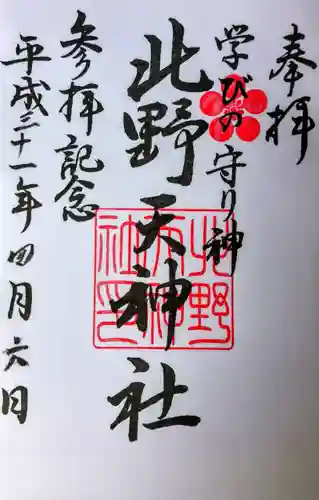 奉拝
学びの守り神
北野天神社
参拝記念
平成三十一年四月六日
北野天神社印